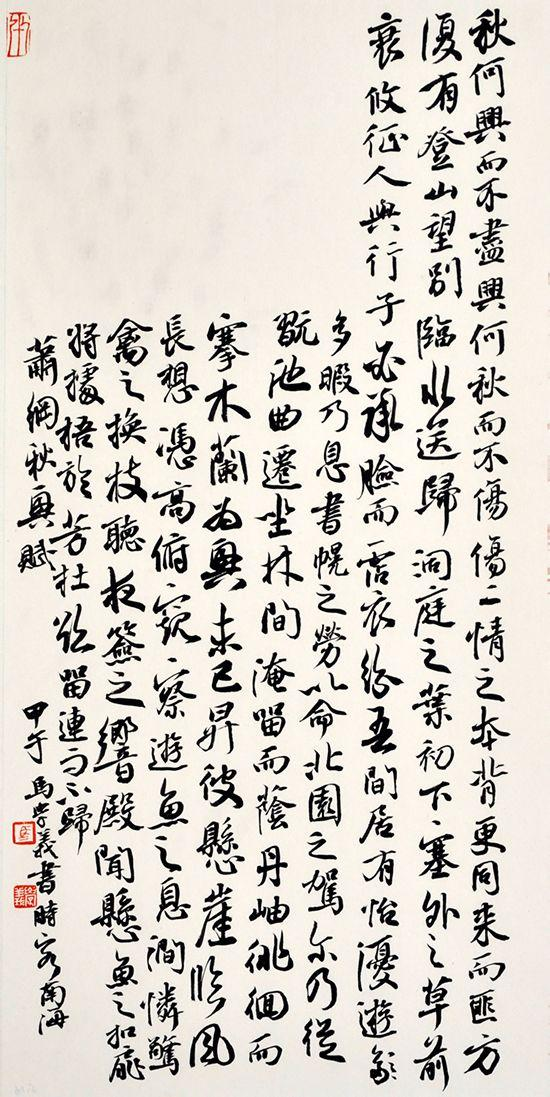 秋何興而不盡興何秋而不傷傷二情之本背更同来而匪方
復有登山望別臨水送歸洞庭之葉初下塞外之草前
衰攸征人與行子必承臉而霑衣紛吾間居有怡優遊
多暇乃息書幌之勞以命北園之駕尔乃從
翫池曲遷坐林間淹留而蔭丹岫徘徊而
搴木蘭為興未已昇彼懸崖臨風
長想憑高俯窺察遊魚之息澗憐驚
禽之換枝聽夜籤之響殿聞懸魚之扣扉
將據梧於芳杜欲留連而不歸
蕭綱秋興賦
甲午馬學義書時客南海